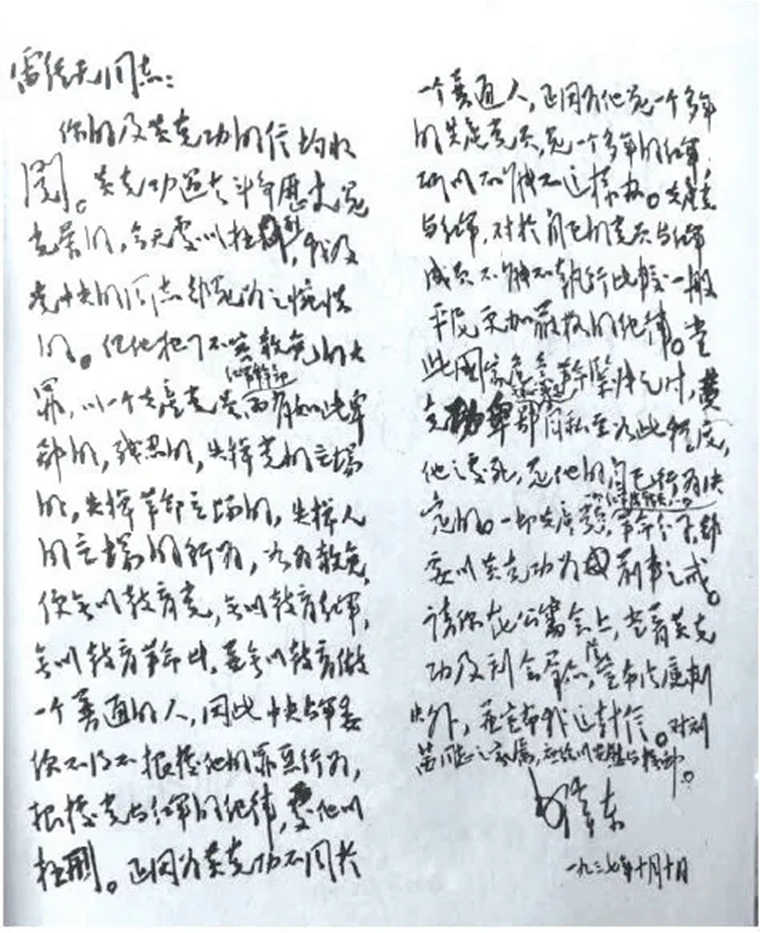 雷经天同志：
你的及黄克功的信均收
阅。黄克功过去斗争历史是
光荣的，今天处以极刑，我及
党中央的同志都是为之惋惜
的。但他犯了不容赦免的大
罪，以一个共产党员红军干部而有如此卑
鄙的，残忍的，失掉党的立场
的，失掉革命立场的，失掉人
的立场的行为，如为赦免，
便无以教育党，无以教育红军，
无以教育革命者，并无以教育做
一个普通的人，因此中央与军委
便不得不根据他的罪恶行为，
根据党与红军的纪律，处他以
极刑。正因为黄克功不同于
一个普通人，正因为他是一个多年
的共产党员，是一个多年的红军，
所以不能不这样办。共产党
与红军，对于自己的党员与红军
成员不能不执行比较一般
平民更加严格的纪律。当
此国家危急革命紧张之时，黄
克功卑鄙自私至如此程度，
他之处死，是他的自己行为决
定的。一切共产党员，革命分子，都
要以黄克功为前车之戒。
请你在公审会上，当着黄克
功及到会群众，除宣布法庭判
决外，并宣布我这封信。对刘
茜同志之家属，应给以安慰与抚恤。
毛泽东
一九三七年十月十日